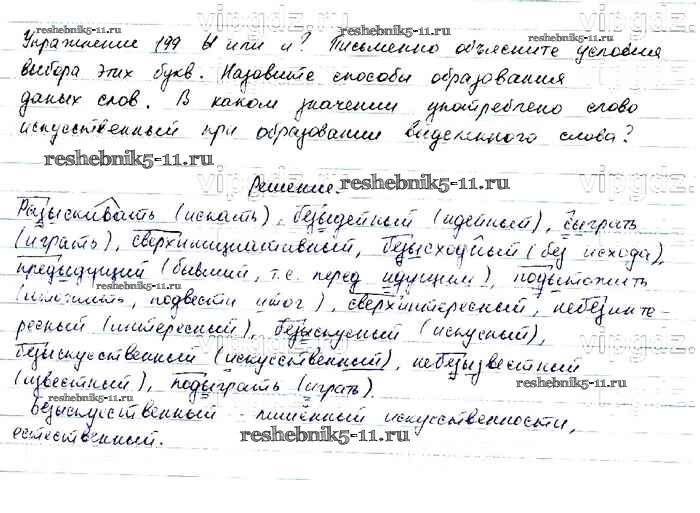 Упражнение 199 Ы или и? Письменно объясните условия
выбора этих букв. Назовите способы образования
даных слов. В каком значении употреблено слово
искусственный при образовании выделенного слова?
Решение.
Разыскивать (искать), безыдейный (идейный), сыграть
(играть), сверхинициативный, безысходный (без исхода),
предыдущий (бывший, т.е. перед идущим), подытожить
(итожить, подвести итог), сверхинтересный, небезинте-
ресный (интересный), безыскусный (искусный),
безыскусственный (искусственный), небезызвестный
(известный), подыграть (играть).
Безыскусственный - лишённый искусственности,
естественный.
reshebnik5-11.ru
reshebnik5-11.ru
reshebnik5-11.ru
reshebnik5-11.ru
reshebnik5-11.ru
reshebnik5-11.ru
reshebnik5-11.ru
reshebnik5-11.ru
vipgdz.ru
vipgdz.ru
vipgdz.ru